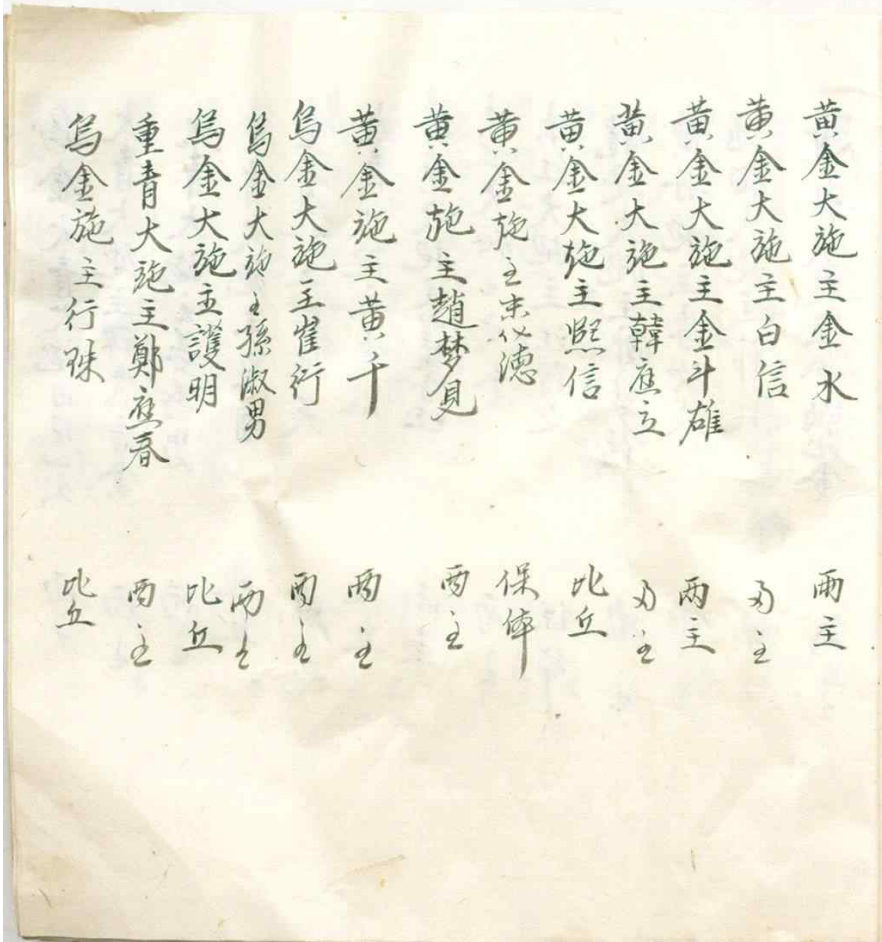 黃金大施主金水 兩主
黃金大施主白信 兩主
黃金大施主金斗雄 兩主
黃金大施主韓應立 兩主
黃金大施主熙信 比丘
黃金施主 德 保体
黃金施主趙梦見 兩主
黃金施主黃千 兩主
烏金大施主崔行 兩主
烏金大施主孫淑男 兩主
烏金大施主護明 比丘
重青大施主鄭應春 兩主
烏金施主行珠 比丘